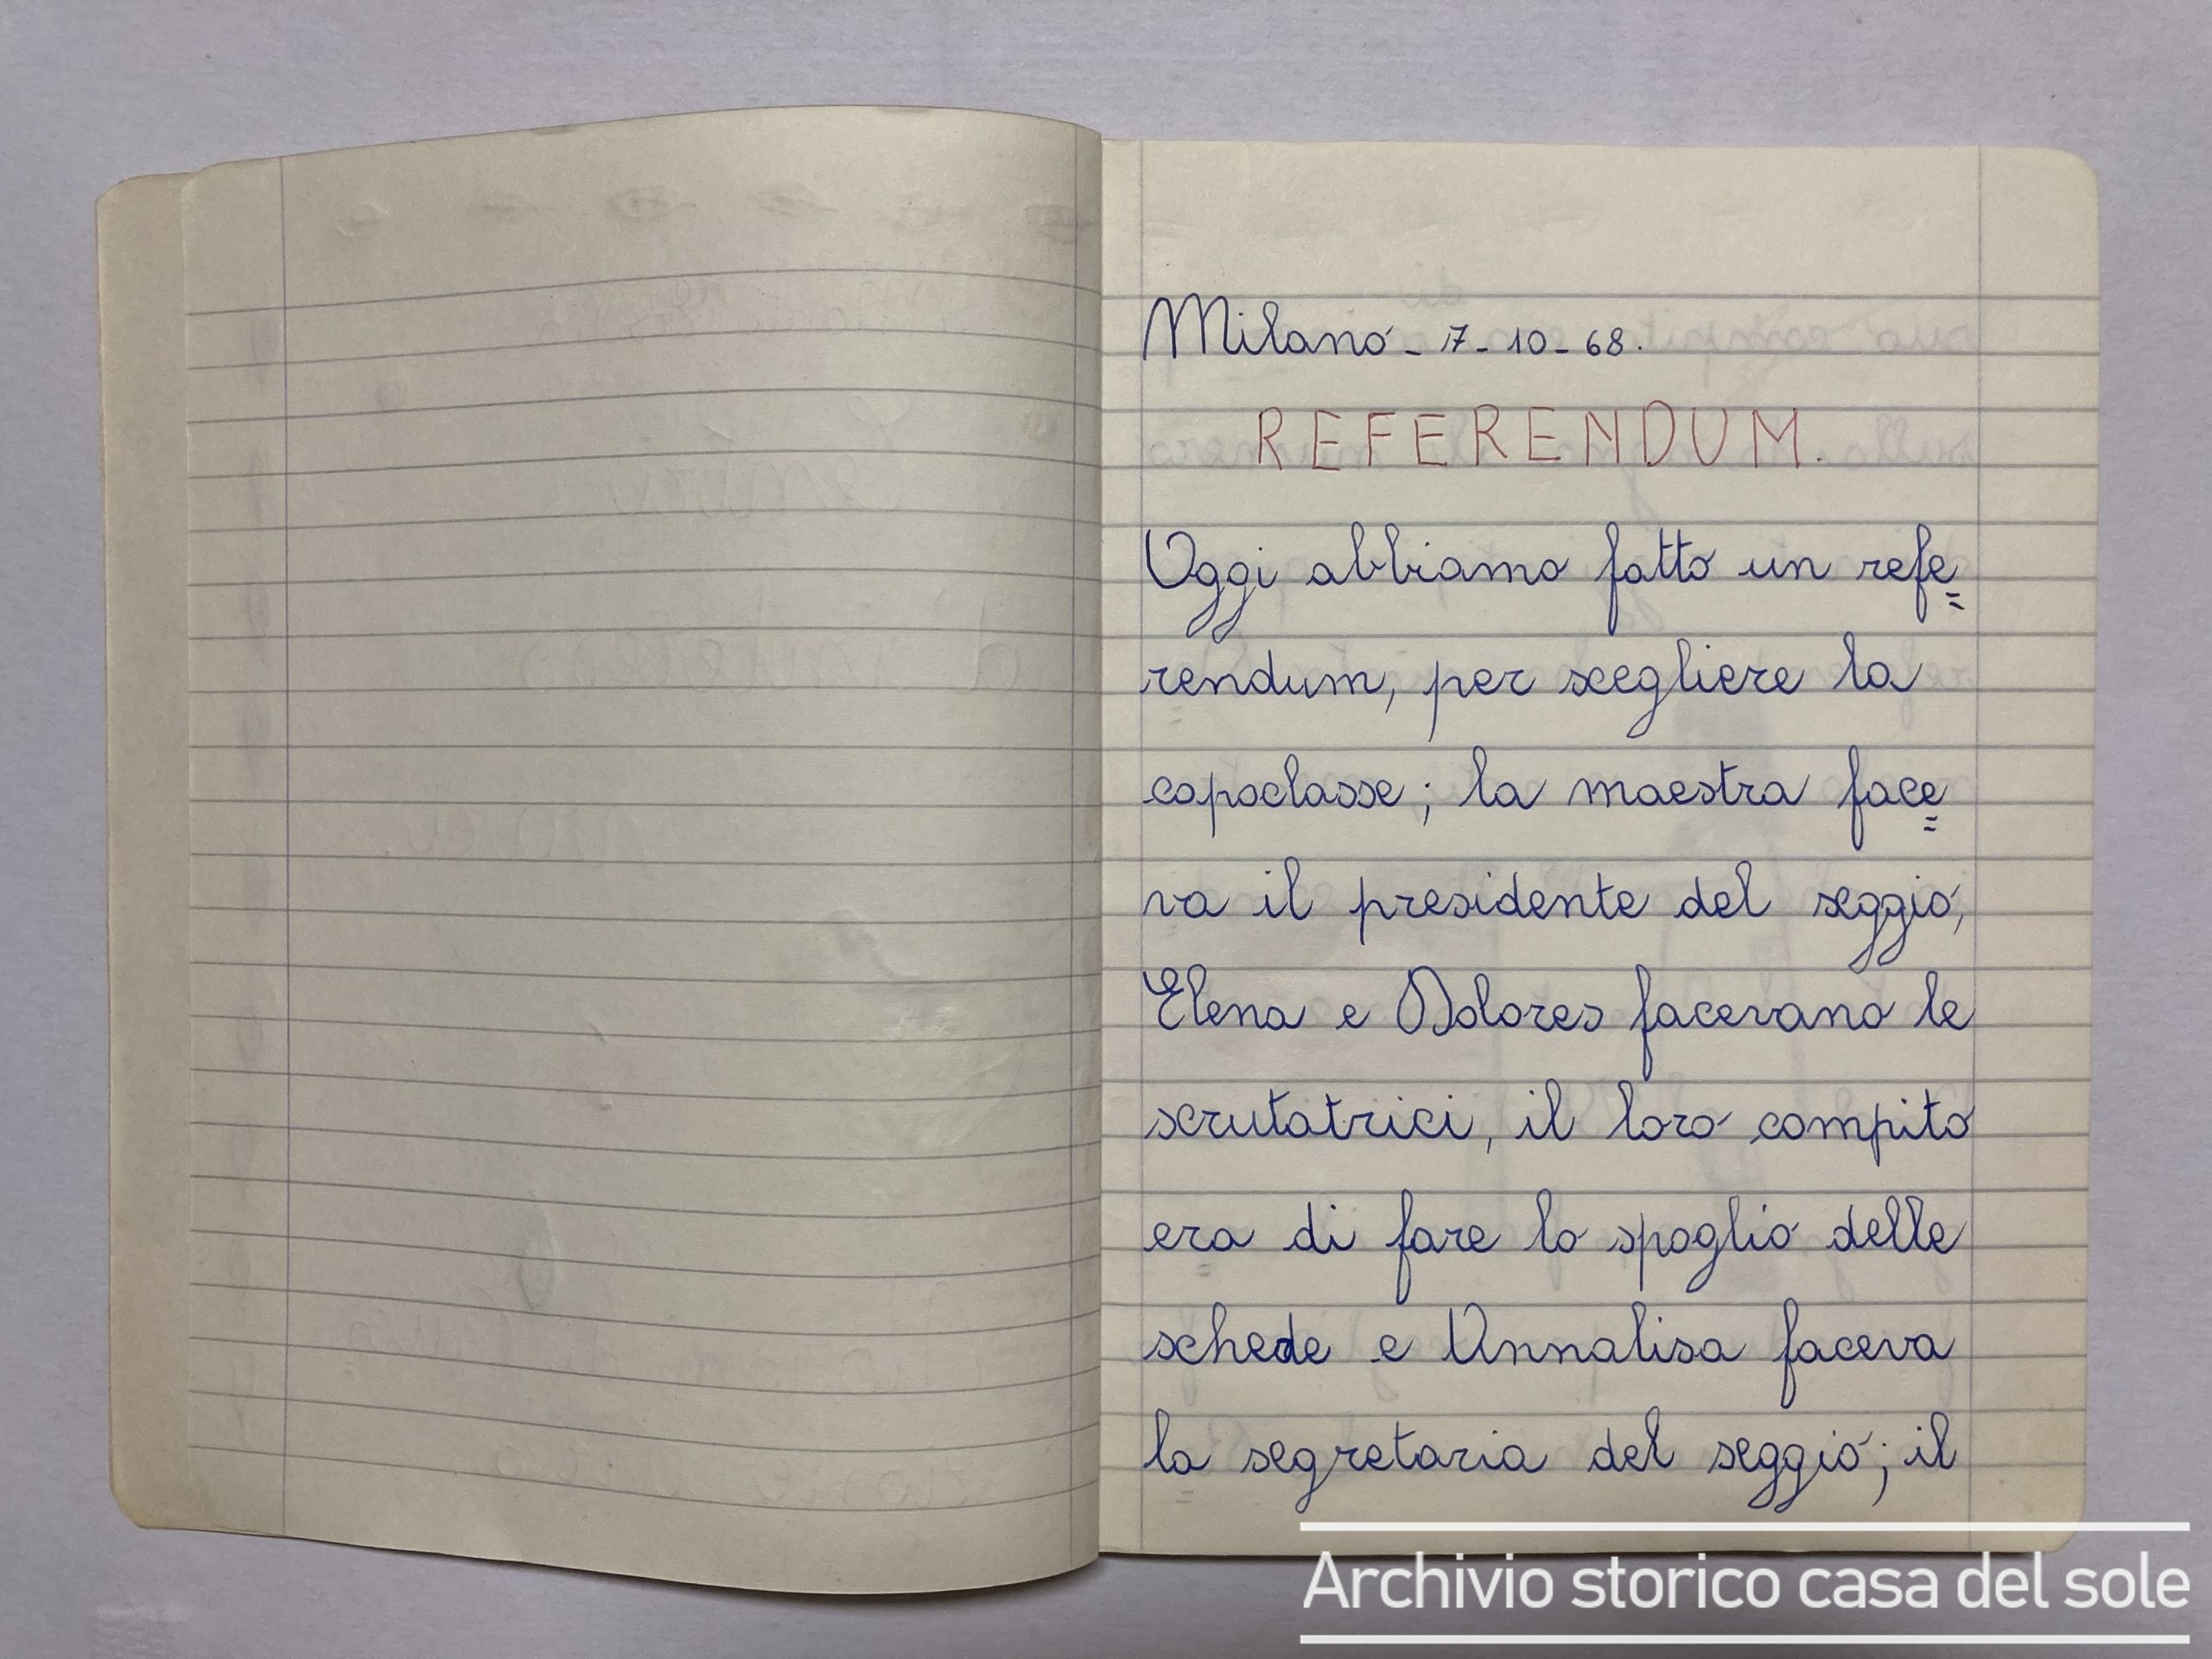 Milano - 7 - 10 - 68.
REFERENDUM.
Oggi abbiamo fatto un refe=
rendum, per scegliere la
capoclasse; la maestra face=
va il presidente del seggio,
Elena e Dolores facevano le
scrutatrici, il loro compito
era di fare lo spoglio delle
schede e Annalisa faceva
la segretaria del seggio; il
Archivio storico casa del sole